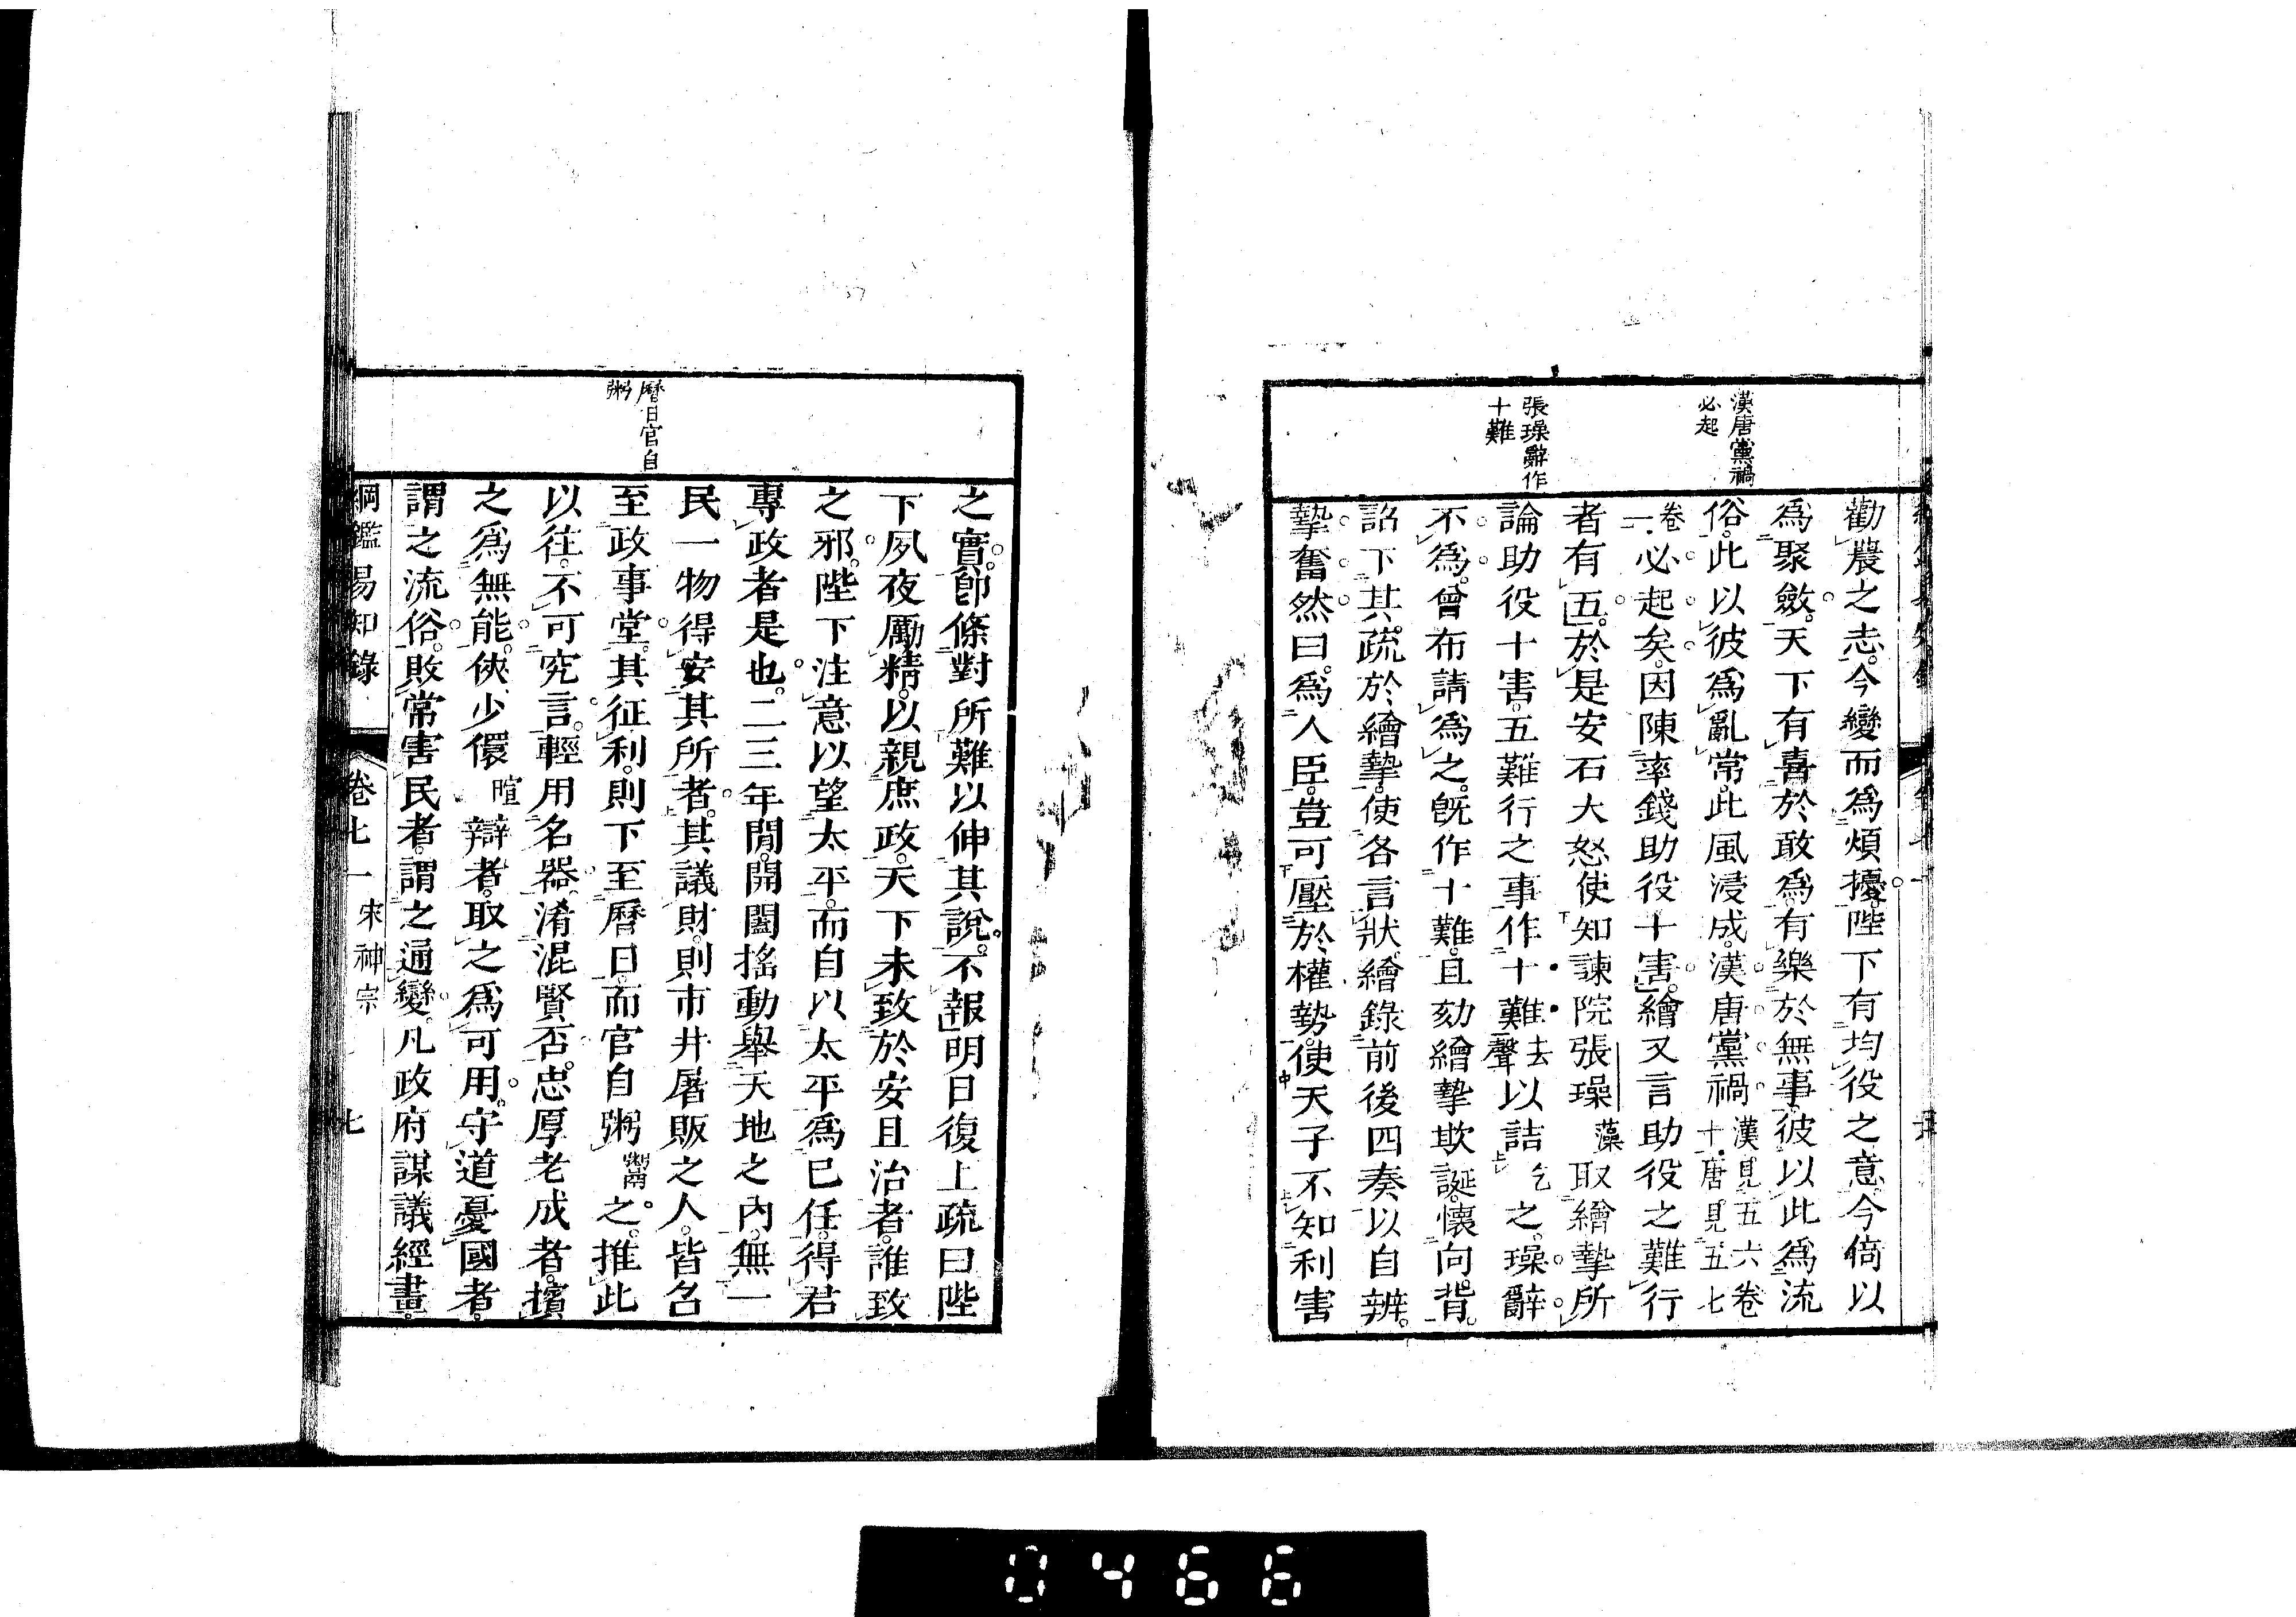 漢唐黨禍
必起
張璪辭作
十難
勸農之志。今變而爲煩擾。陛下有均役之意。今倚以
爲聚斂。天下有喜於敢爲。有樂於無事。彼以此爲流
俗。此以彼爲亂常。此風浸成。漢唐黨禍漢見五六卷十唐見五七
卷一必起矣。因陳率錢助役十害。繪又言助役之難行
者有五。於是安石大怒使知諫院張璪藻取繪摯所
論助役十害。五難行之事作十難去聲以詰乞之。璪辭
不爲。曾布請爲之。旣作十難。且劾繪摯欺誕。懷向背。
詔下其疏於繪摯。使各言狀。繪錄前後四奏以自辨。
摯奮然曰。爲人臣。豈可壓於權勢。使天子不知利害
之實。卽條對所難以伸其說。不報。明日復上疏曰陛
下夙夜勵精。以親庶政。天下未致於安且治者。誰致
之邪。陛下注意以望太平。而自以太平爲已任。得君
專政者是也。二三年閒。開闔搖動舉天地之內。無一
民一物得安其所者。其議財。則市井屠販之人。皆召
至政事堂。其征利。則下至曆日。而官自粥鬻之。推此
以往。不可究言。輕用名器。淆混賢否。忠厚老成者。擯
之爲無能。俠少儇暄辯者。取之爲可用。守道憂國者。
謂之流俗。敗常害民者。謂之通變。凡政府謀議經畫。
曆日官自
粥
綱鑑易知錄 卷七一 宋神宗 七
0466